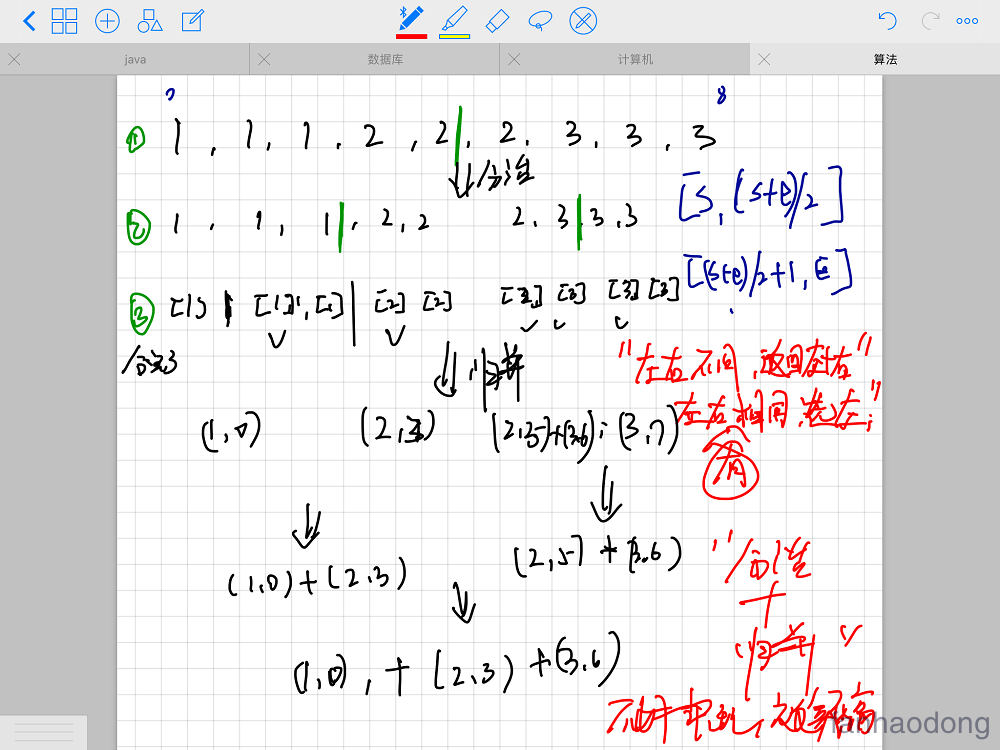 java 数据库 计算机 算法
0 8
① 1 , 1, 1 , 2 , 2 , 2, 3, 3, 3
分治
[S, (s+e)/2]
② 1 , 1, 1 , 2, 2 2, 3 , 3, 3
[(s+e)/2+1, e]
③ [1] [1], [1] [2] [2] [2] [3] [3] [3]
分完了
归并
"左右不同,返回左+右"
左右相同,选左;"
(1,0) (2,3) (2,5)+(3,6); (3,7)
(2,5) + (3,6)
(1,0) + (2,3)
"分治
+
归并"
(1,0), + (2,3) + (3,6)